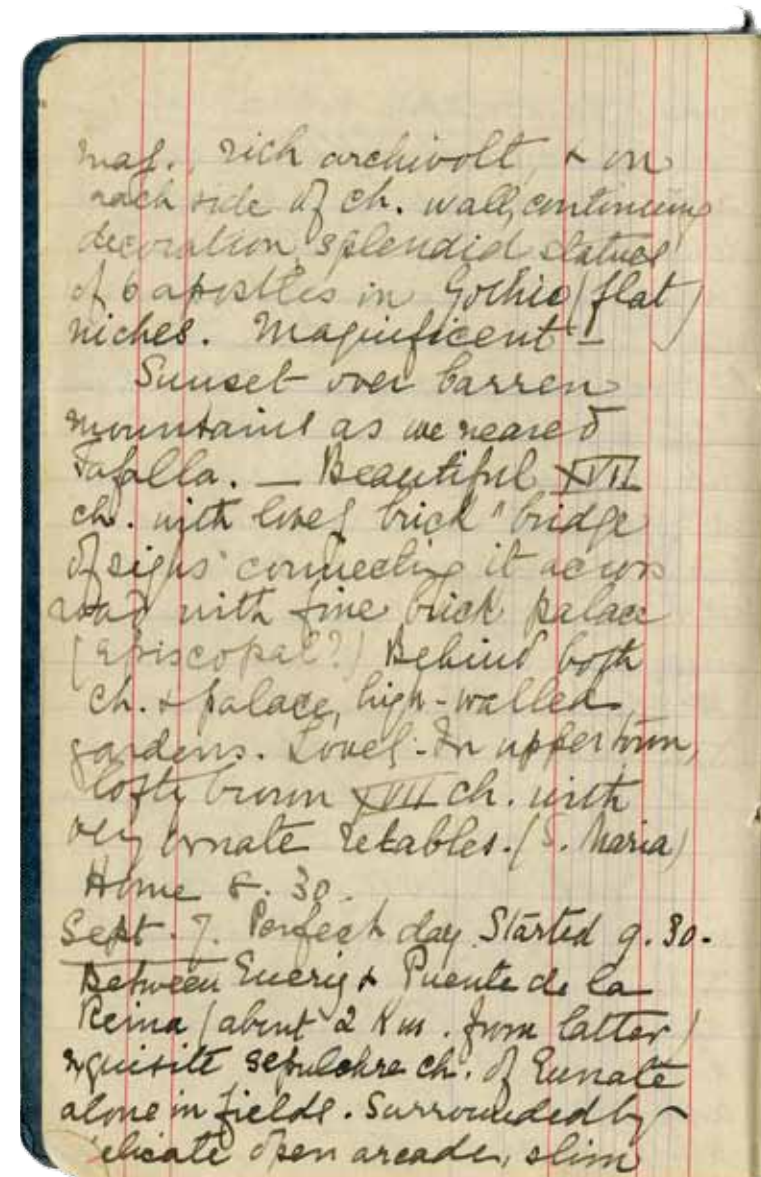 mag., rich archivolt, & on
each side of ch. wall, continuing
decoration, splendid statues
of 6 apostles in Gothic (flat)
niches. Magnificent –
Sunset over barren
mountains as we neared
Tafalla. — Beautiful XVII
ch. with lovely brick "bridge
of sighs" connecting it across
road with fine brick palace
(Episcopal?) Behind both
ch. & palace, high-walled
gardens. Lovely. In upper town,
lofty brown XVII ch. with
very ornate retables. (S. Maria)
Home 8.30.
Sept. 7. Perfect day. Started 9.30.
Between Eneriz & Puente de la
Reina (about 2 Km. from latter)
exquisite sepulchre ch. of Eunate
alone in fields. Surrounded by
delicate open arcade, slim